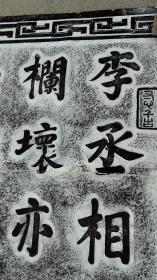 李丞相
欄壞亦